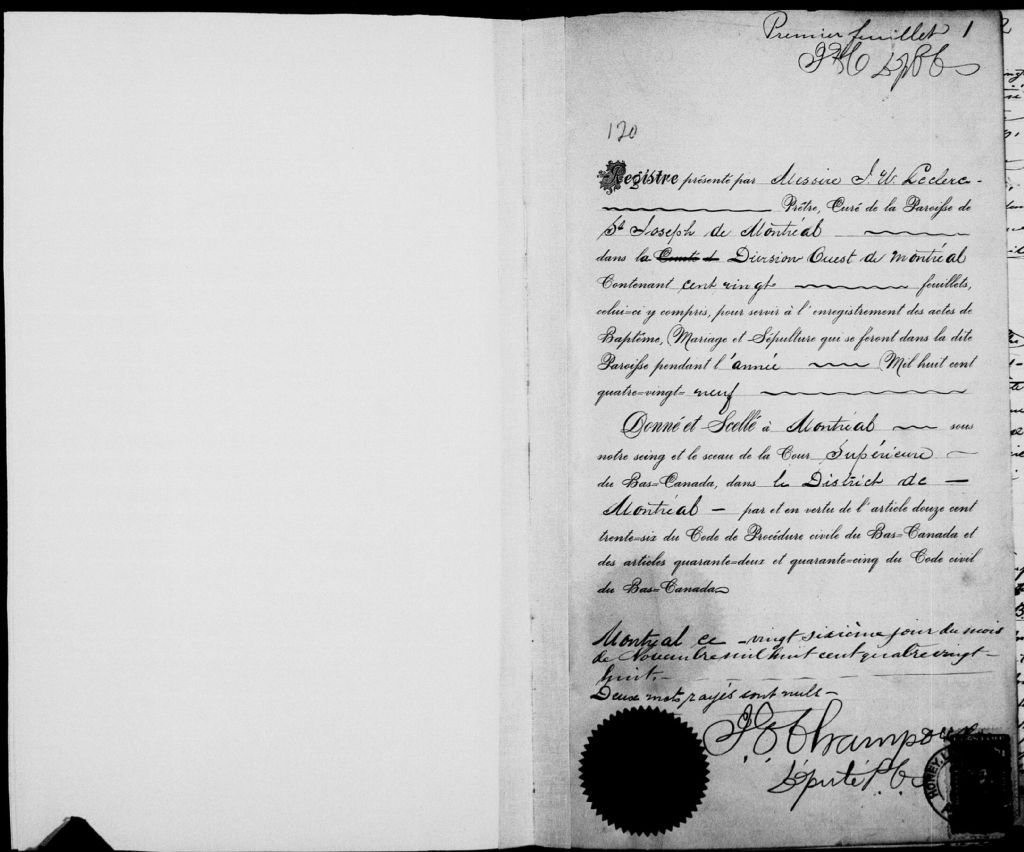 Premier feuillet 1
120
Registre présenté par Messire J. U. Leclerc
Prêtre, Curé de la Paroisse de
St Joseph de Montréal
dans la Comté de Division Ouest de Montréal
Contenant cent vingt feuillets,
celui-ci y compris, pour servir à l'enregistrement des actes de
Baptême, Mariage et Sépulture qui se feront dans la dite
Paroisse pendant l'année Mil huit cent
quatre-vingt-neuf
Donné et Scellé à Montréal sous
notre seing et le sceau de la Cour Supérieure
du Bas-Canada, dans le District de
Montréal par et en vertu de l'article douze cent
trente-six du Code de Procédure civile du Bas-Canada et
des articles quarante-deux et quarante-cinq du Code civil
du Bas-Canada
Montréal ce vingt sixième jour du mois
de Novembre mil huit cent quatre vingt
huit.
Deux mots rayés sont nuls
Champoux
Député P. C.